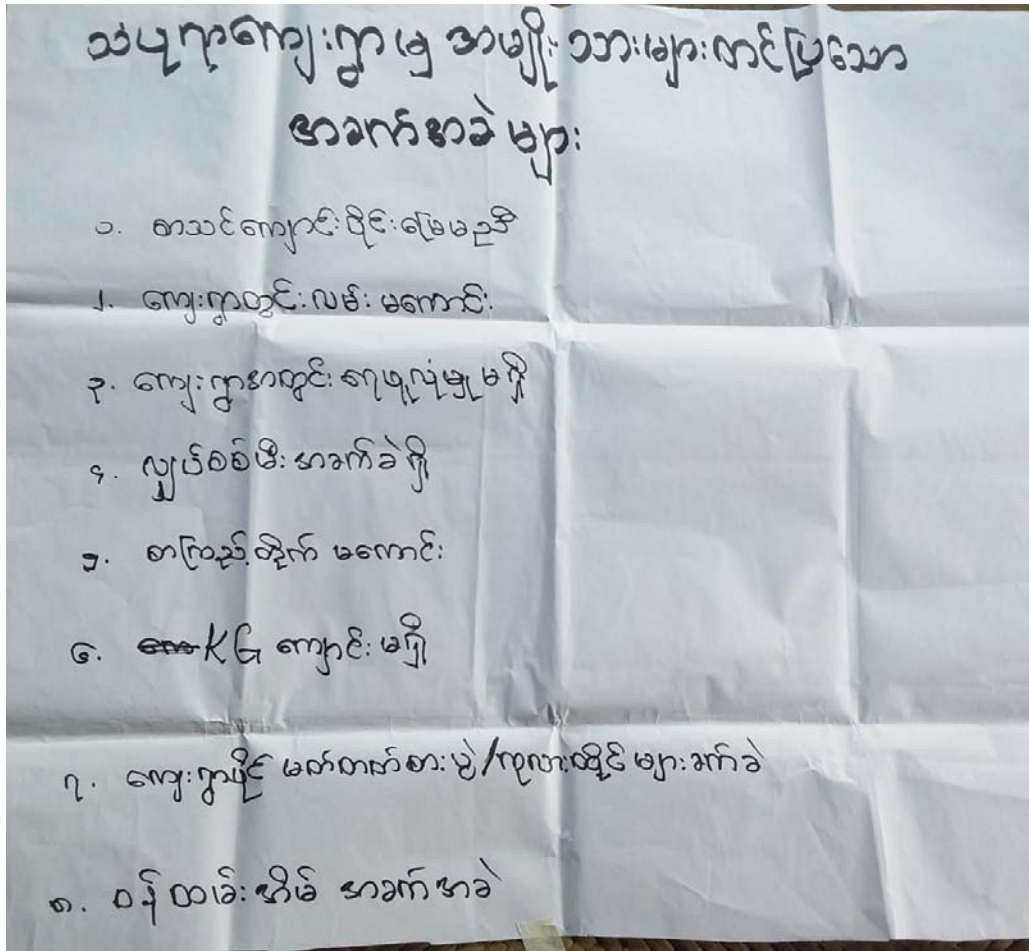 သပုကုကျေးရွာမှ အမျိုးသားများတင်ပြသော
အခက်အခဲများ
၁. စာသင်ကျောင်းဝိုင်းမြေမညီ
၂. ကျေးရွာတွင်းလမ်းမကောင်း
၃. ကျေးရွာအတွင်း ရေဖူလုံမှုမရှိ
၄. လျှပ်စစ်မီးအခက်ခဲရှိ
၅. စာကြည့်တိုက် မကောင်း
၆. KG ကျောင်းမရှိ
၇. ကျေးရွာပိုင် မတ်တတ်စားပွဲ/ကုလားထိုင်များခက်ခဲ
၈. ဝန်ထမ်းအိမ် အခက်အခဲ